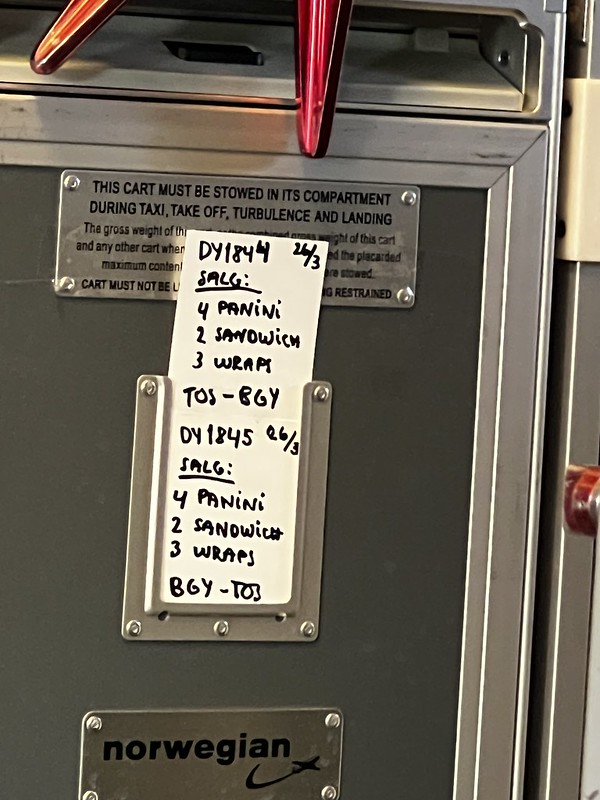 THIS CART MUST BE STOWED IN ITS COMPARTMENT
DURING TAXI, TAKE OFF, TURBULENCE AND LANDING
The gross weight of weight of this cart
and any other cart when the placarded
maximum are stowed.
CART MUST NOT BE RESTRAINED
DY1844 26/3
SALG:
4 PANINI
2 SANDWICH
3 WRAPS
TOS-BGY
DY1845 26/3
SALG:
4 PANINI
2 SANDWICH
3 WRAPS
BGY-TOS
norwegian